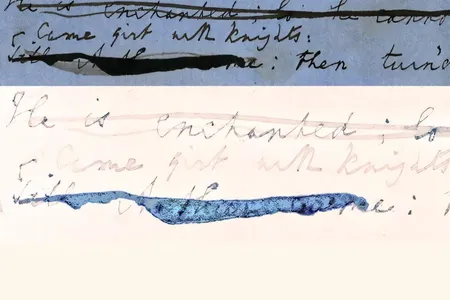 He is enchanted; so he canno
Came girt with knights:
me: then turn'd
He is enchanted; so
Came girt with knights
me: